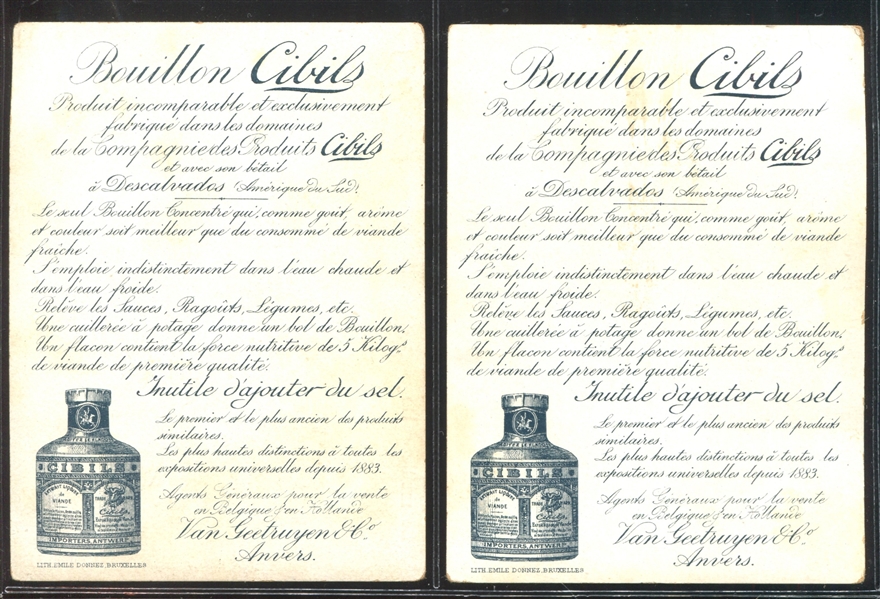 Bouillon Cibils
Produit incomparable et exclusivement
fabriqué dans les domaines
de la Compagnie des Produits Cibils
et avec son bétail
à Descalvados (Amérique du Sud)
Le seul Bouillon Concentré qui, comme goût, arôme
et couleur soit meilleur que du consommé de viande
fraîche.
S'emploie indistinctement dans l'eau chaude et
dans l'eau froide.
Relève les Sauces, Ragoûts, Légumes, etc.
Une cuillerée à potage donne un bol de Bouillon.
Un flacon contient la force nutritive de 5 Kilogs
de viande de première qualité.
Inutile d'ajouter du sel.
Le premier et le plus ancien des produits
similaires.
Les plus hautes distinctions à toutes les
expositions universelles depuis 1883.
Agents Généraux pour la vente
en Belgique & en Hollande
Van Geetruyen & Co
Anvers.
CIBILS
EXTRAIT LIQUIDE
de
VIANDE
TRADE MARK
Cibils
IMPORTERS, ANTWERP
LITH. EMILE DONNEZ, BRUXELLES
Bouillon Cibils
Produit incomparable et exclusivement
fabriqué dans les domaines
de la Compagnie des Produits Cibils
et avec son bétail
à Descalvados (Amérique du Sud)
Le seul Bouillon Concentré qui, comme goût, arôme
et couleur soit meilleur que du consommé de viande
fraîche.
S'emploie indistinctement dans l'eau chaude et
dans l'eau froide.
Relève les Sauces, Ragoûts, Légumes, etc.
Une cuillerée à potage donne un bol de Bouillon.
Un flacon contient la force nutritive de 5 Kilogs
de viande de première qualité.
Inutile d'ajouter du sel.
Le premier et le plus ancien des produits
similaires.
Les plus hautes distinctions à toutes les
expositions universelles depuis 1883.
Agents Généraux pour la vente
en Belgique & en Hollande
Van Geetruyen & Co
Anvers.
CIBILS
EXTRAIT LIQUIDE
de
VIANDE
TRADE MARK
Cibils
IMPORTERS, ANTWERP
LITH. EMILE DONNEZ, BRUXELLES